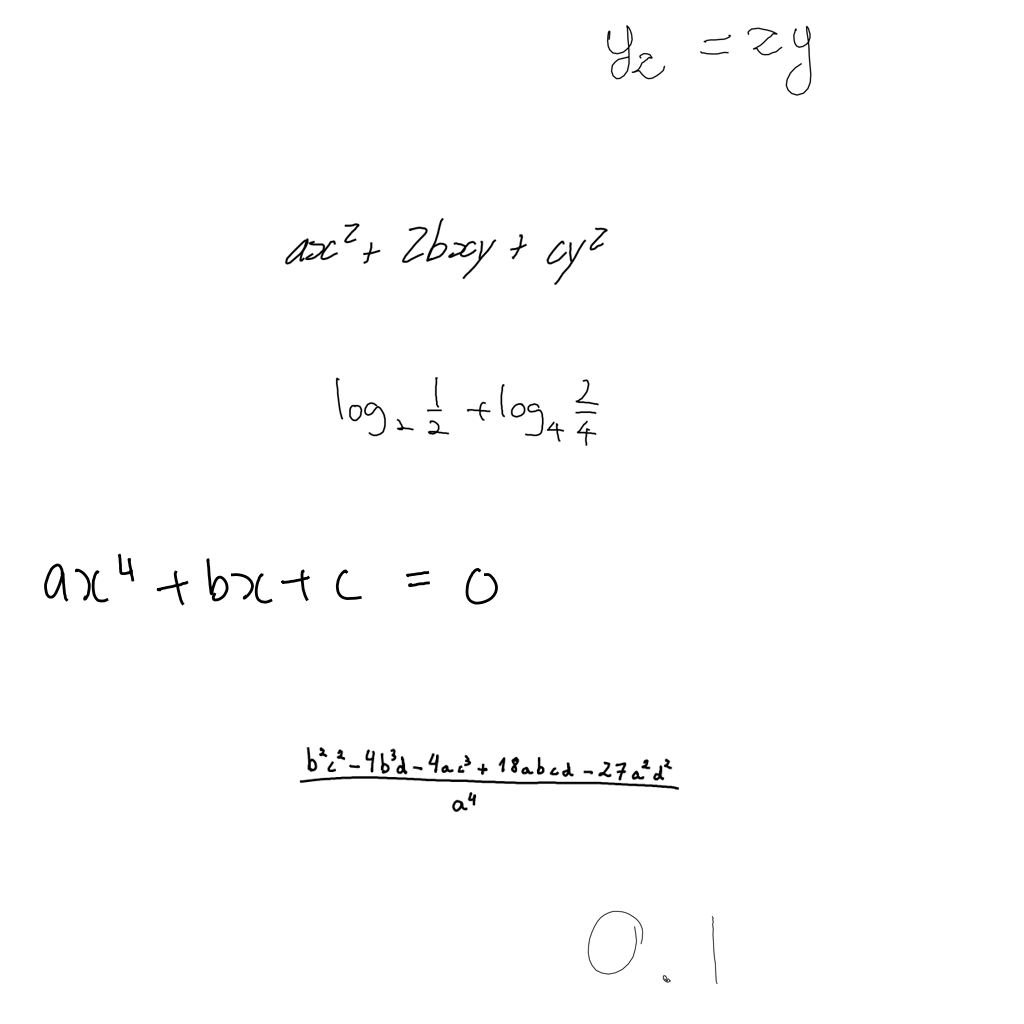 y_z = zy
ax² + 2bxy + cy²
log₂ 1/2 + log₄ 2/4
ax⁴ + bx + c = 0
(b²c² - 4b³d - 4ac³ + 18abcd - 27a²d²)/a⁴
0.1